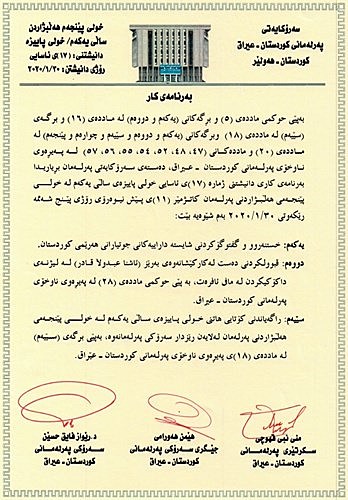 سەرۆکایەتی
پەرلەمانی کوردستان - عیراق
کوردستان - هەولێر
خولی پێنجەم هەڵبژاردن
ساڵی یەکەم/ خولی پاییزە
دانیشتنی: (١٧)ی ئاسایی
رۆژی دانیشتن: ٢٠٢٠/١/٣٠
بەرنامەی کار
بەپێی حوکمی ماددەی (٥) و برگەکانی (یەکەم و دووەم) لە ماددەی (١٦) و برگەی
(سێیەم) لە ماددەی (١٨) وبرگەکانی (یەکەم و دووەم و سێیەم و چوارەم و پێنجەم) لە
ماددەی (٢٠) و ماددەکانی (٤٧، ٤٨، ٥٢، ٥٤، ٥٥، ٥٦، ٥٧) لە پەیرەوی
ناوخۆی پەرلەمانی کوردستان - عیراق، دەستەی سەرۆکایەتی پەرلەمان بڕیاریدا
بەرنامەی کاری دانیشتنی ژمارە (١٧)ی ئاسایی خولی پاییزەی ساڵی یەکەم لە خولی
پێنجەمی هەڵبژاردنی پەرلەمان کاتژمێر (١١)ی پێش نیوەرۆی رۆژی پێنج شەممە
رێکەوتی ٢٠٢٠/١/٣٠ بەم شێوەیە بێت:
یەکەم: خستنەروو و گفتوگۆکردنی شایستە داراییەکانی جوتیارانی هەرێمی کوردستان.
دووەم: قبوڵکردنی دەست لەکارکێشانەوەی بەرێز (ئاشنا عبدولا قادر) لە لیژنەی
داکۆکیکردن لە مافی ئافرەت، بە پێی حوکمی ماددەی (٢٨) لە پەیرەوی ناوخۆی
پەرلەمانی کوردستان - عیراق.
سێیەم: راگەیاندنی کۆتایی هاتنی خولی پاییزەی ساڵی یەکەم لە خولی پێنجەمی
هەڵبژاردنی پەرلەمان لەلایەن رێزدار سەرۆکی پەرلەمانەوە، بەپێی برگەی (سێیەم)
لە ماددەی (١٨)ی پەیرەوی ناوخۆی پەرلەمانی کوردستان - عێراق.
منی نبی قهوچی
سکرتێری پەرلەمانی
کوردستان - عیراق
هێمن هەورامی
جێگری سەرۆکی پەرلەمانی
کوردستان - عیراق
د. رێواز فایق حسێن
سەرۆکی پەرلەمانی
کوردستان - عیراق